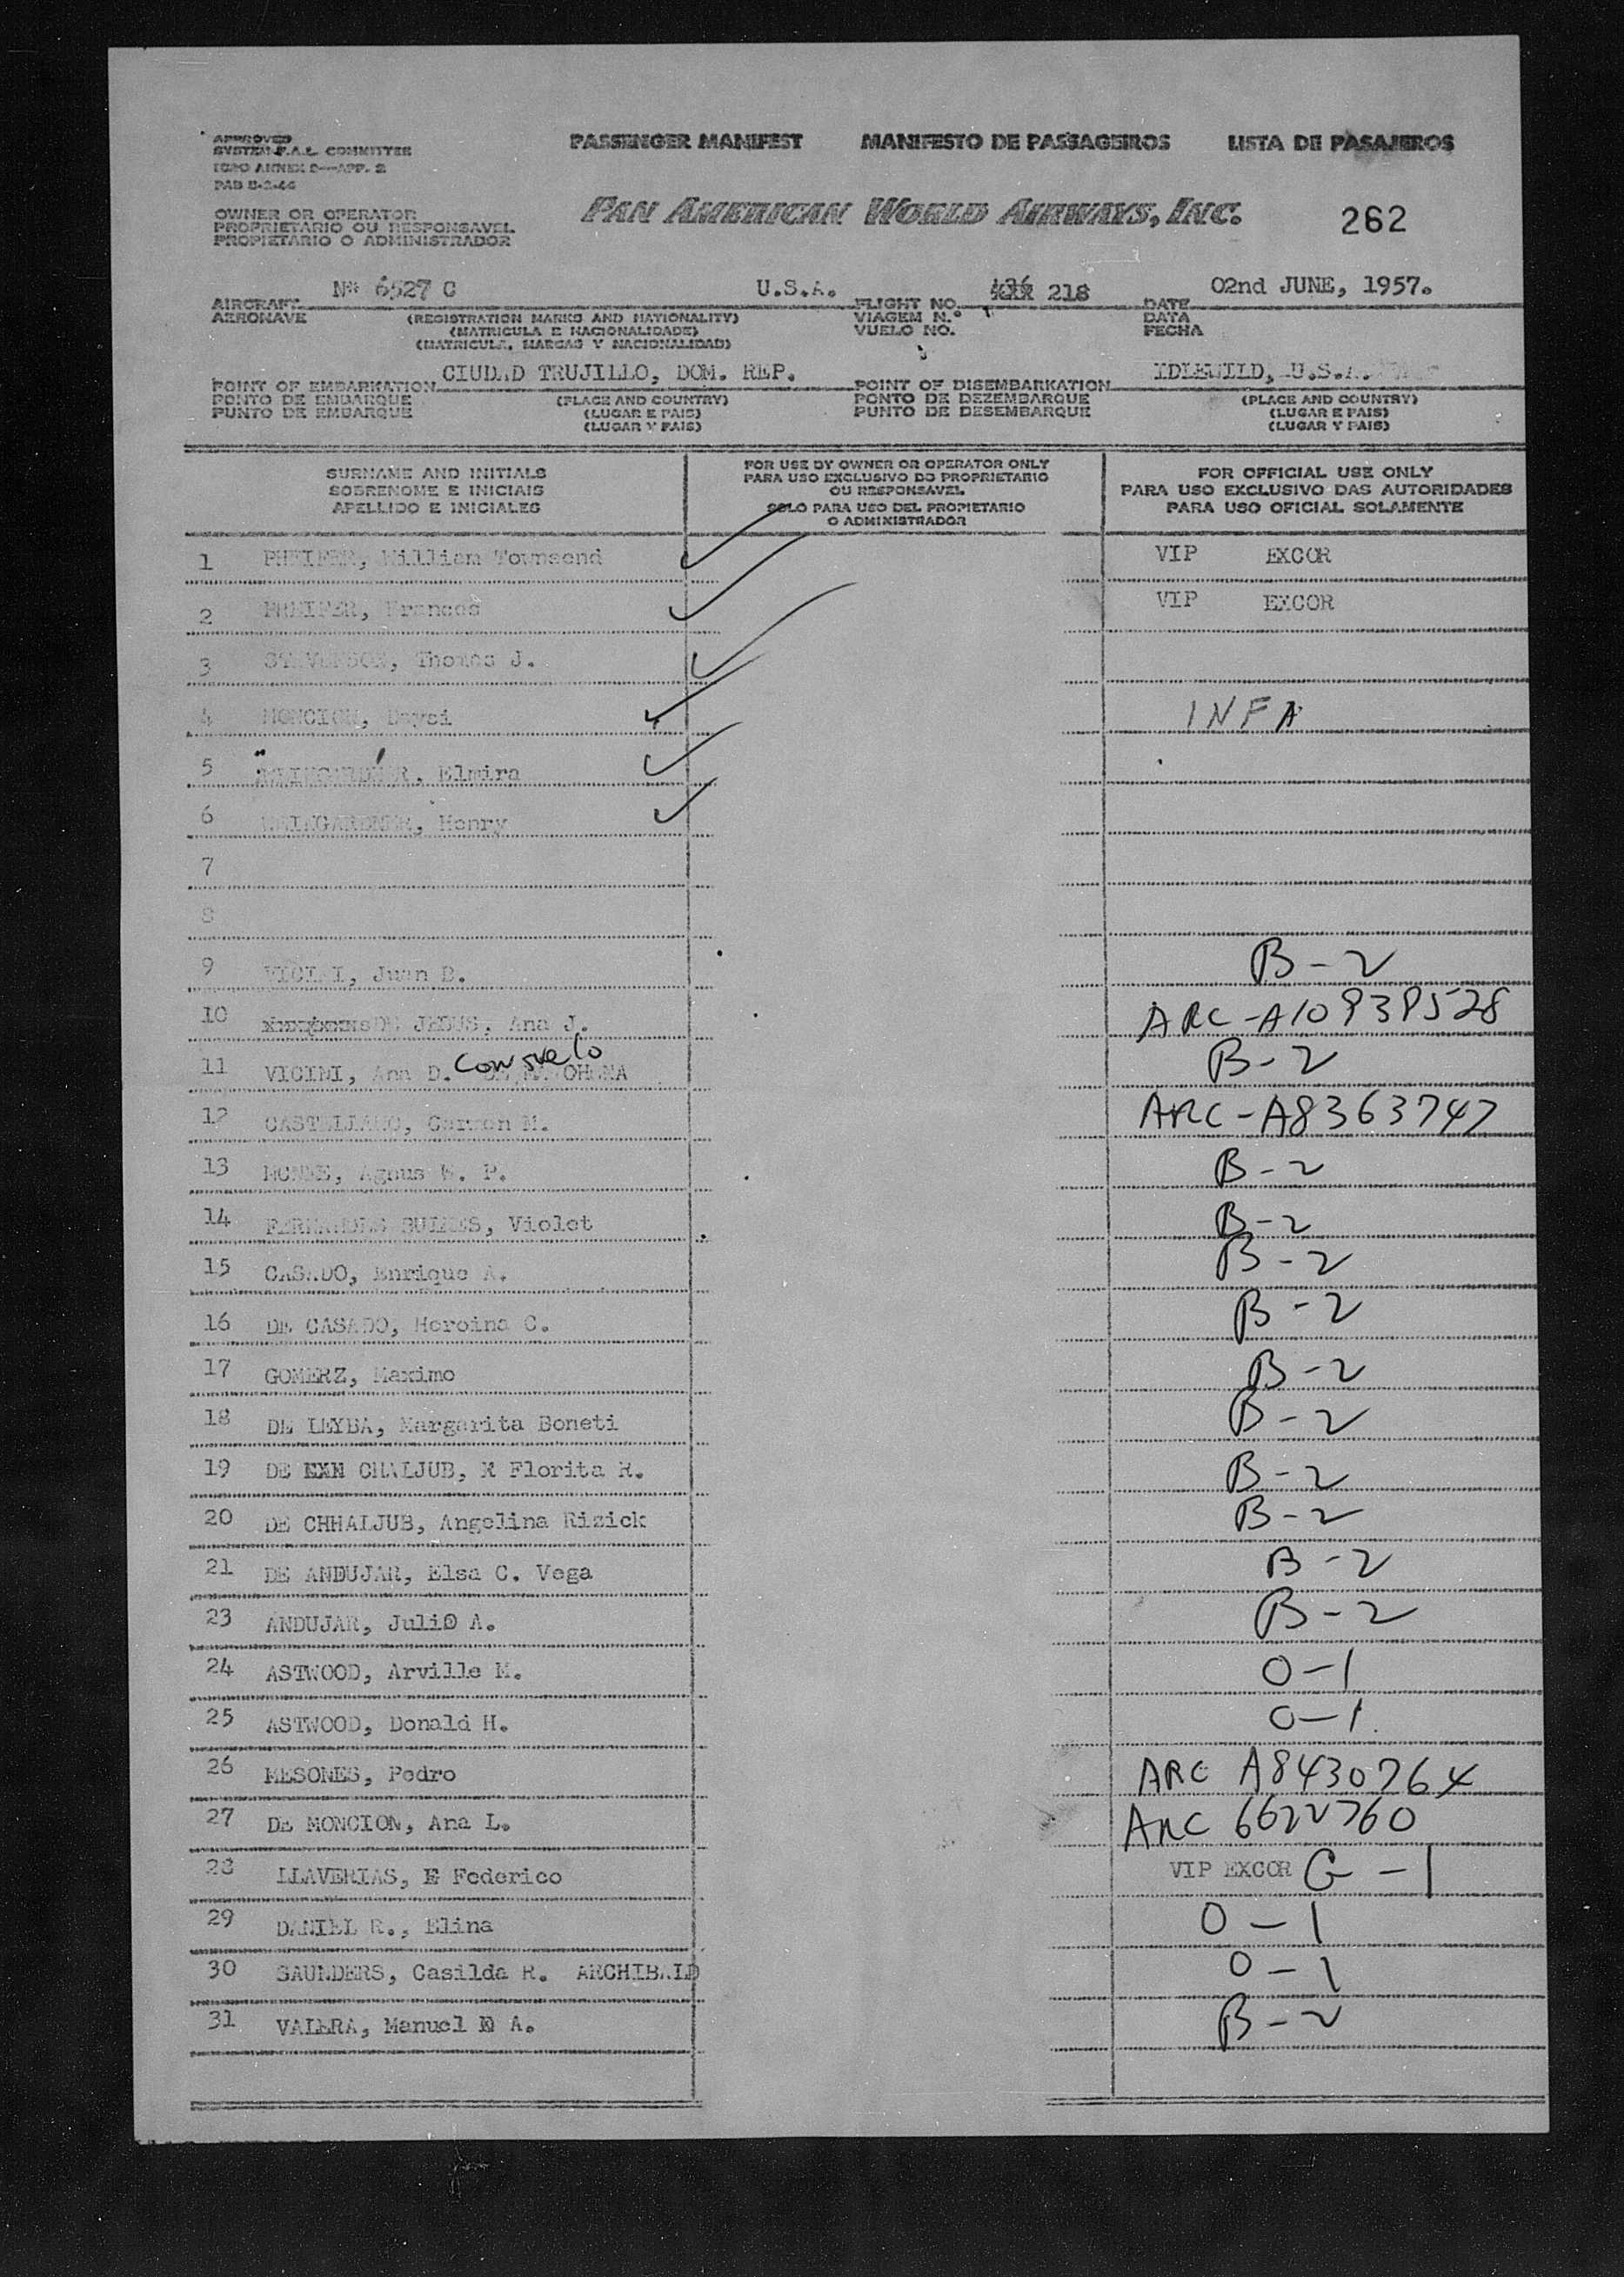 APPROVED
SYSTEM F.A.L. COMMITTEE
ICAO ANNEX 9—APP. 2
PAB 8-2-46
PASSENGER MANIFEST MANIFESTO DE PASSAGEIROS LISTA DE PASAJEROS
OWNER OR OPERATOR
PROPRIETARIO OU RESPONSAVEL
PROPIETARIO O ADMINISTRADOR
PAN AMERICAN WORLD AIRWAYS, INC. 262
AIRCRAFT N** 6527 C U.S.A. FLIGHT NO. 436 218 DATE 02nd JUNE, 1957.
AERONAVE (REGISTRATION MARKS AND NATIONALITY) VIAGEM N.º DATA
(MATRICULA E NACIONALIDADE) VUELO NO. FECHA
(MATRICULA, MARCAS Y NACIONALIDAD)
POINT OF EMBARKATION CIUDAD TRUJILLO, DOM. REP. POINT OF DISEMBARKATION IDLEWILD, U.S.A.
PONTO DE EMBARQUE (PLACE AND COUNTRY) PONTO DE DEZEMBARQUE (PLACE AND COUNTRY)
PUNTO DE EMBARQUE (LUGAR E PAIS) PUNTO DE DESEMBARQUE (LUGAR E PAIS)
(LUGAR Y PAIS) (LUGAR Y PAIS)
SURNAME AND INITIALS
SOBRENOME E INICIAIS
APELLIDO E INICIALES
FOR USE BY OWNER OR OPERATOR ONLY
PARA USO EXCLUSIVO DO PROPRIETARIO
OU RESPONSAVEL
SOLO PARA USO DEL PROPIETARIO
O ADMINISTRADOR
FOR OFFICIAL USE ONLY
PARA USO EXCLUSIVO DAS AUTORIDADES
PARA USO OFICIAL SOLAMENTE
1 PHEIFER, William Townsend VIP EXCOR
2 PHEIFER, Frances VIP EXCOR
3 STEVENSON, Thomas J.
4 MONCION, Deysi INFA
5 Elmira
6 WEINGARDNER, Henry
7
8
9 VICINI, Juan B. B-2
10 DE JESUS, Ana J. ARC-A10939528
11 VICINI, Ana D. Consuelo B-2
12 CASTELLANO, Carmen M. ARC-A8363747
13 Agnus W. P. B-2
14 Violet B-2
15 CASADO, Enrique A. B-2
16 DE CASADO, Heroina C. B-2
17 GOMERZ, Maximo B-2
18 DE LEYBA, Margarita Boneti B-2
19 DE EXN CHALJUB, X Florita R. B-2
20 DE CHHALJUB, Angelina Rizick B-2
21 DE ANDUJAR, Elsa C. Vega B-2
23 ANDUJAR, Julio A. B-2
24 ASTWOOD, Arville M. O-1
25 ASTWOOD, Donald H. O-1
26 MESONES, Pedro ARC A8430764
27 DE MONCION, Ana L. ARC 6622760
28 LLAVERIAS, E Federico VIP EXCOR G-1
29 DANIEL R., Elina O-1
30 SAUNDERS, Casilda R. ARCHIBALD O-1
31 VALERA, Manuel A. B-2